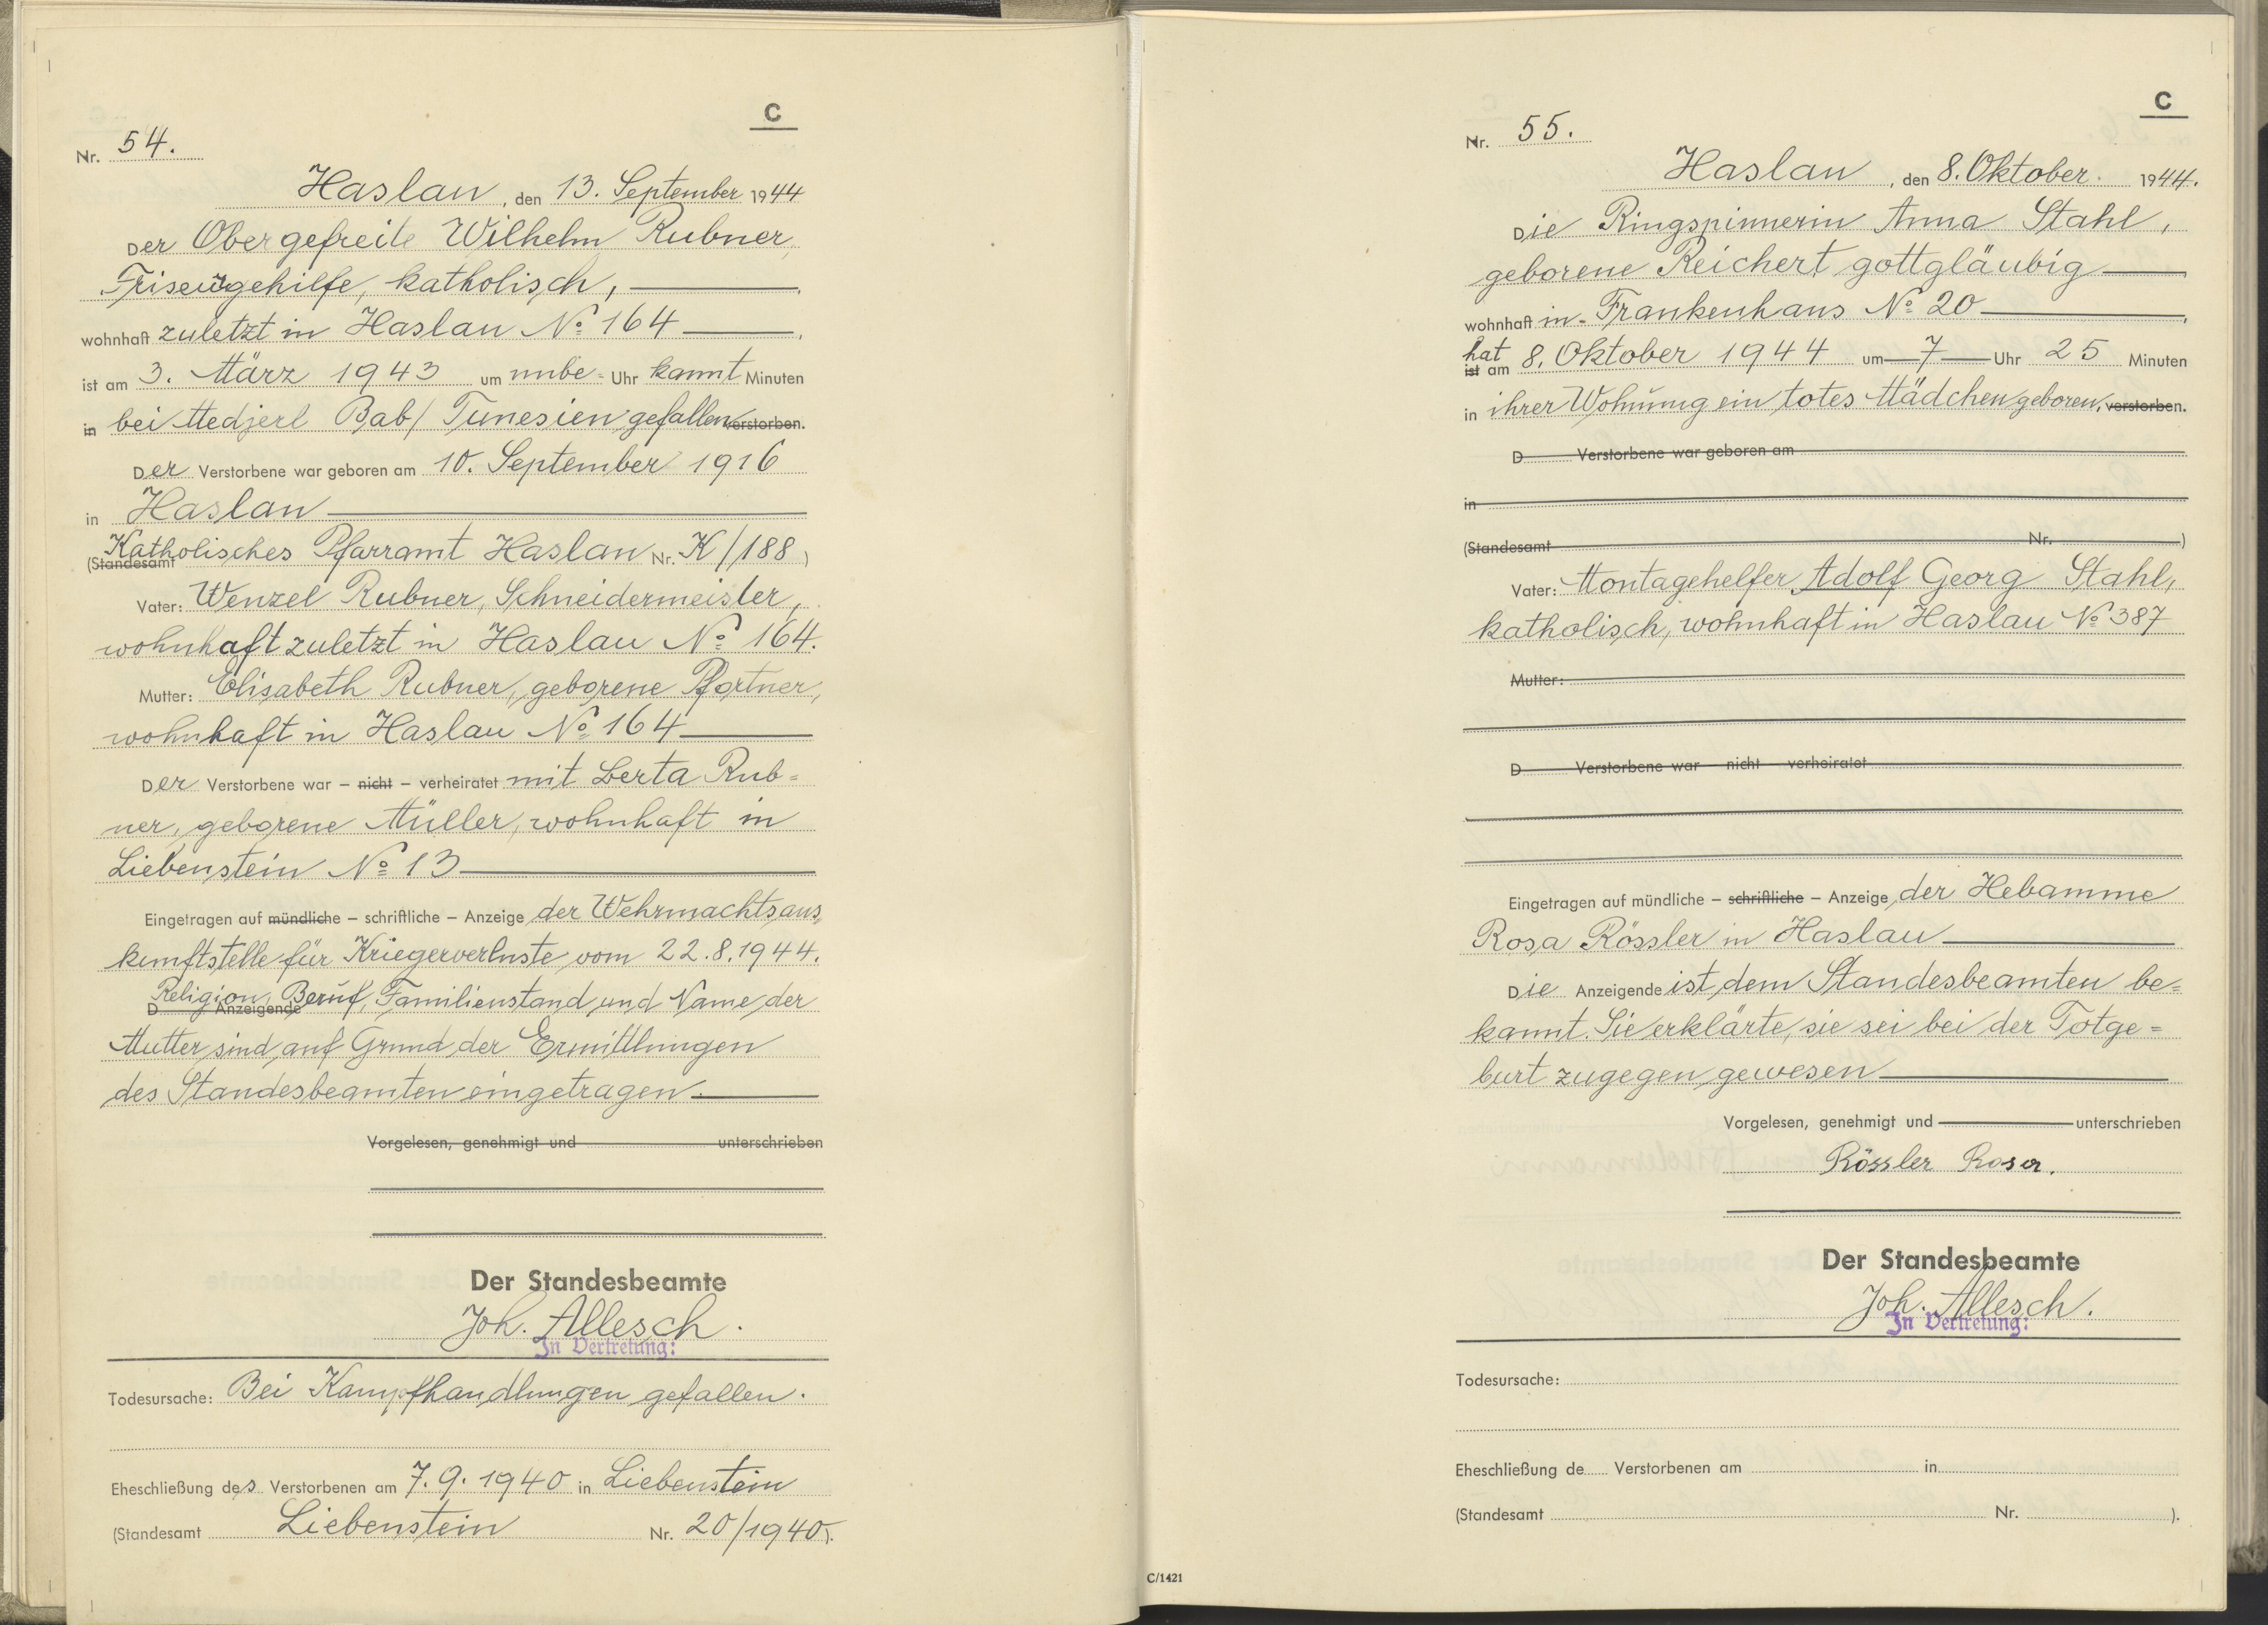 C
Nr. 54.
Haslau, den 13. September 1944
Der Obergefreite Wilhelm Rubner,
Friseurgehilfe, katholisch,
wohnhaft zuletzt in Haslau No 164
ist am 3. März 1943 um unbe- Uhr kannt Minuten
in bei Medjerl Bab/ Tunesien gefallen verstorben.
Der Verstorbene war geboren am 10. September 1916
in Haslau
Katholisches Pfarramt Haslau Nr. K/188)
(Standesamt
Vater: Wenzel Rubner, Schneidermeister,
wohnhaft zuletzt in Haslau No 164.
Mutter: Elisabeth Rubner, geborene Pfortner,
wohnhaft in Haslau No 164
Der Verstorbene war – nicht – verheiratet mit Berta Rub=
ner, geborene Müller, wohnhaft in
Liebenstein No 13
Eingetragen auf mündliche – schriftliche – Anzeige der Wehrmachtsaus,
kunftstelle für Kriegerverluste vom 22.8.1944.
Religion, Beruf, Familienstand und Name der
D Anzeigende
Mutter sind auf Grund der Ermittlungen
des Standesbeamten eingetragen.
Vorgelesen, genehmigt und unterschrieben
Der Standesbeamte
Joh. Allesch.
In Vertretung:
Todesursache: Bei Kampfhandlungen gefallen.
Eheschließung des Verstorbenen am 7.9.1940 in Liebenstein
(Standesamt Liebenstein Nr. 20/1940).
C
Nr. 55.
Haslau, den 8. Oktober 1944.
Die Ringspinnerin Anna Stahl,
geborene Reichert gottgläubig
wohnhaft in Frankenhaus No 20
hat
ist am 8. Oktober 1944 um 7 Uhr 25 Minuten
in ihrer Wohnung ein totes Mädchen geboren, verstorben.
D Verstorbene war geboren am
in
(Standesamt Nr. )
Vater: Montagehelfer Adolf Georg Stahl,
katholisch, wohnhaft in Haslau No 387
Mutter:
D Verstorbene war nicht verheiratet
Eingetragen auf mündliche – schriftliche – Anzeige der Hebamme
Rosa Rössler in Haslau
Die Anzeigende ist dem Standesbeamten be=
kannt. Sie erklärte, sie sei bei der Totge=
burt zugegen gewesen
Vorgelesen, genehmigt und unterschrieben
Rössler Rosa.
Der Standesbeamte
Joh. Allesch.
In Vertretung:
Todesursache:
Eheschließung de Verstorbenen am in
(Standesamt Nr. ).
C/1421